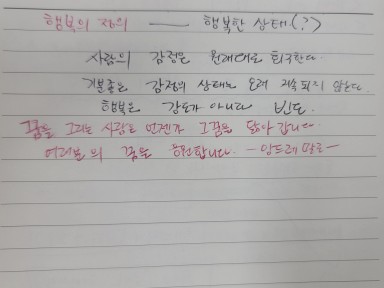 행복의 정의 —— 행복한 상태(?)
사람의 감정은 원래대로 회귀한다.
기분좋은 감정의 상태는 오래 지속되지 않는다
행복은 강도가 아니다 빈도.
꿈을 그리는 사람은 언젠가 그 꿈을 닮아 갑니다.
여러분의 꿈을 응원합니다. -앙드레 말로-